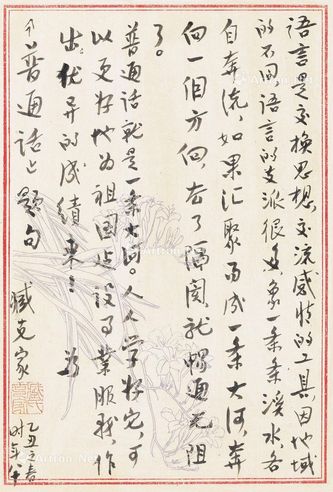 语言是交换思想，交流感情的工具，因地域
的不同，语言的支派很多，象一条条溪水，各
自奔流，如果汇聚而成一条大河，奔
向一个方向，去了隔阂，就畅通无阻
了。
普通话就是一条大河。人人学好它，可
以更好地为祖国建设事业服务，作
出优异的成绩来。为
《普通话》题句
臧克家
乙丑春
时年八十